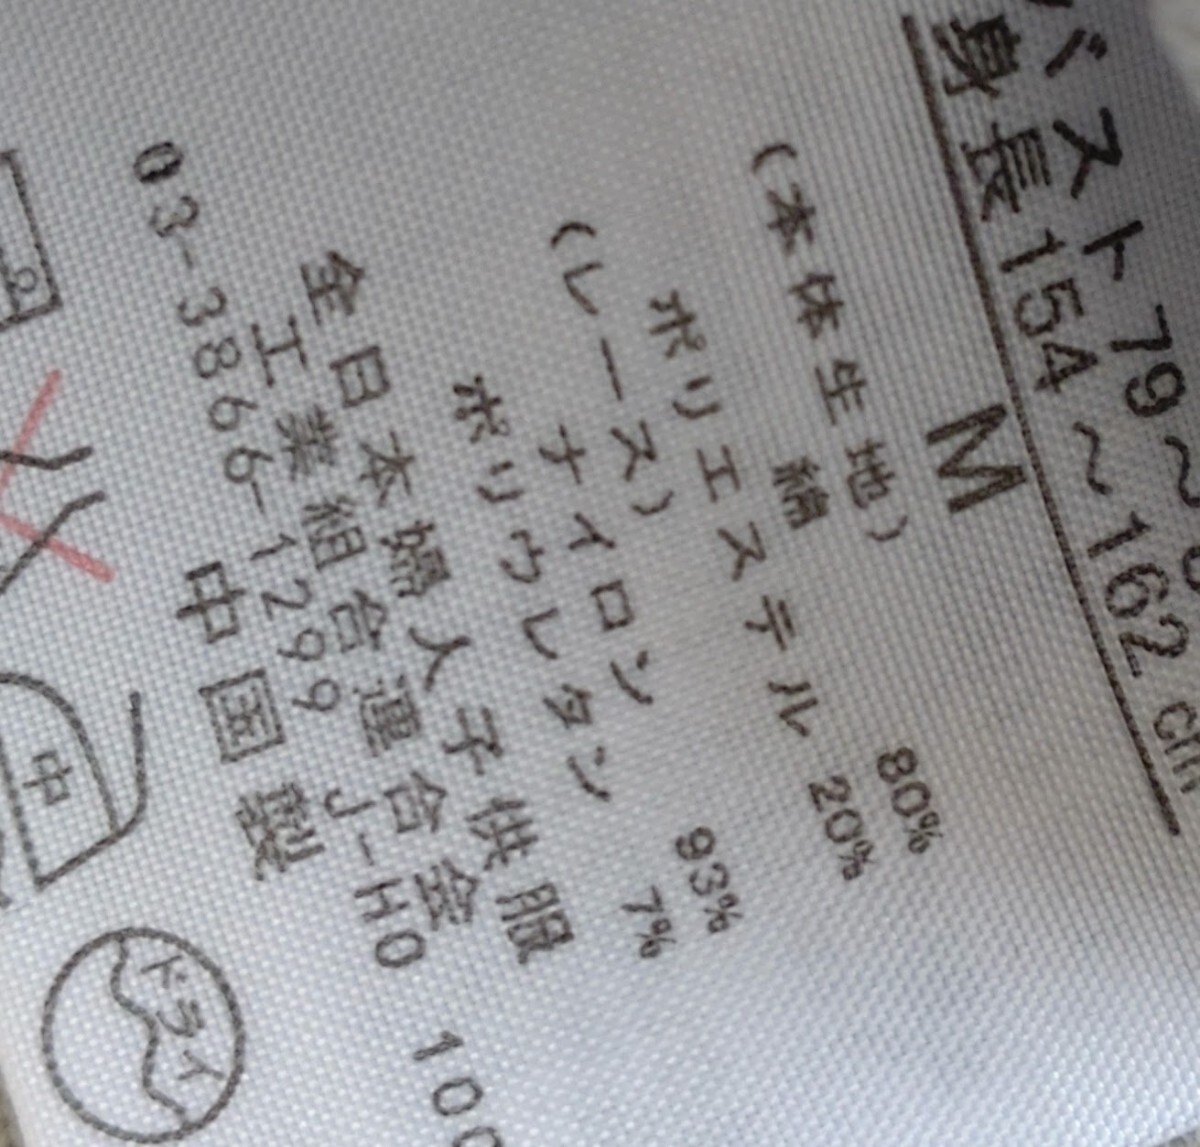 バスト79～
身長154～162cm
M
(本体生地)
綿 80%
ポリエステル 20%
(レース)
ナイロン 93%
ポリウレタン 7%
全日本婦人子供服
工業組合連合会
03-3866-1299 J-HO 100
中国製
中
ドライ